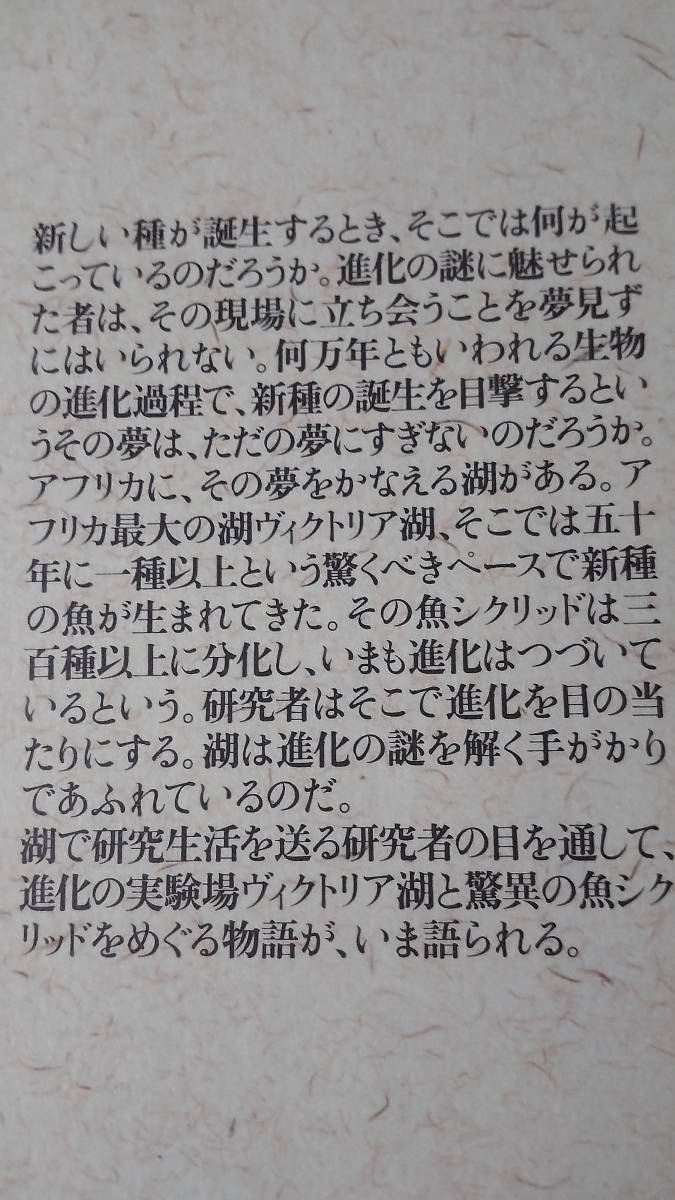 新しい種が誕生するとき、そこでは何が起
こっているのだろうか。進化の謎に魅せられ
た者は、その現場に立ち会うことを夢見ず
にはいられない。何万年ともいわれる生物
の進化過程で、新種の誕生を目撃するとい
うその夢は、ただの夢にすぎないのだろうか。
アフリカに、その夢をかなえる湖がある。ア
フリカ最大の湖ヴィクトリア湖、そこでは五十
年に一種以上という驚くべきペースで新種
の魚が生まれてきた。その魚シクリッドは三
百種以上に分化し、いまも進化はつづいて
いるという。研究者はそこで進化を目の当
たりにする。湖は進化の謎を解く手がかり
であふれているのだ。
湖で研究生活を送る研究者の目を通して、
進化の実験場ヴィクトリア湖と驚異の魚シク
リッドをめぐる物語が、いま語られる。